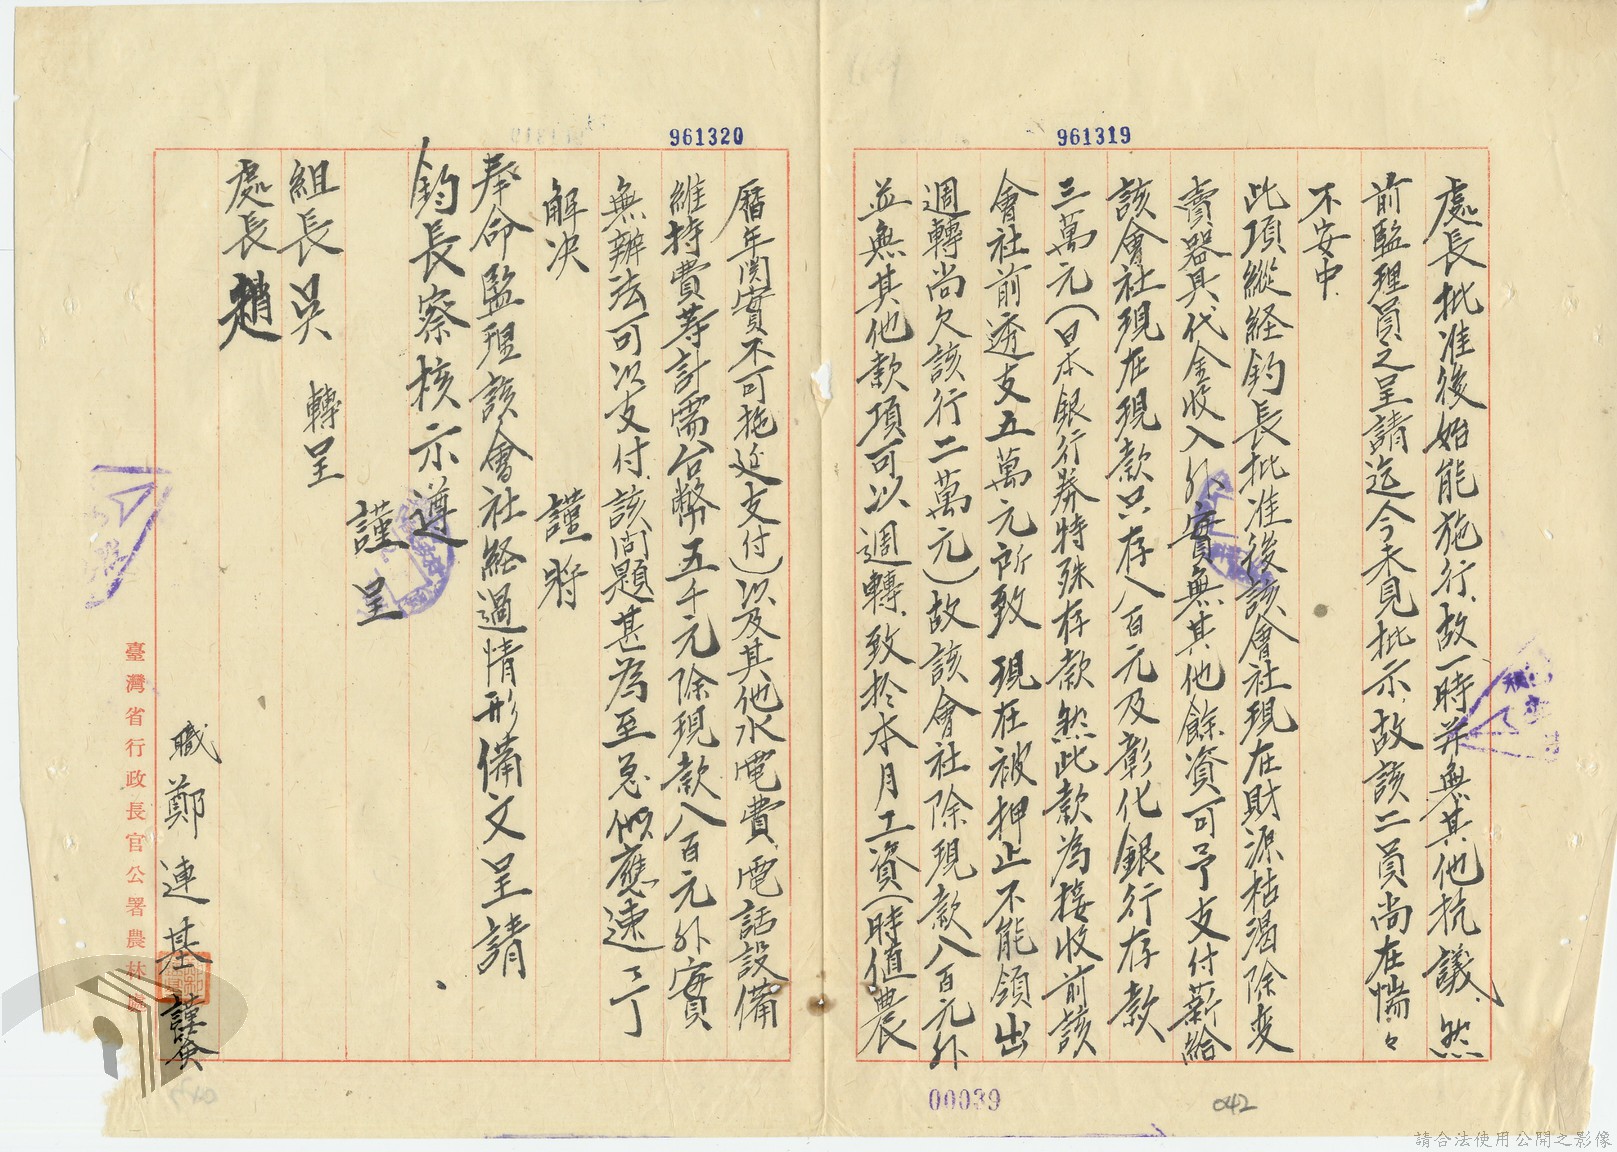 961319
處長批准後始能施行.故一時并無其他抗議.然
前監理員之呈請迄今未見批示.故該二員尚在惴々
不安中.
此項縱経鈞長批准後該會社現在財源枯渴除変
賣器具代金收入外實無其他餘資可予支付薪給
該會社現在現款只存八百元及彰化銀行存款
三萬元(日本銀行券特殊存款然此款為接收前該
會社前透支五萬元所致現在被押止不能領出
週轉尚欠該行二萬元)故該會社除現款八百元外
並無其他款項可以週轉.致於本月工資(時值農
961320
曆年関實不可拖延支付)以及其他水電費.電話設備
維持費等計需台幣五千元除現款八百元外實
無辦法可以支付.該問題甚為至急似應速予
解決
謹將
奉命監理該會社経過情形備文呈請
鈞長察核示遵
謹呈
組長吳 轉呈
處長趙
職鄭連基謹簽
臺灣省行政長官公署農林處
00039
042
請合法使用公開之影像